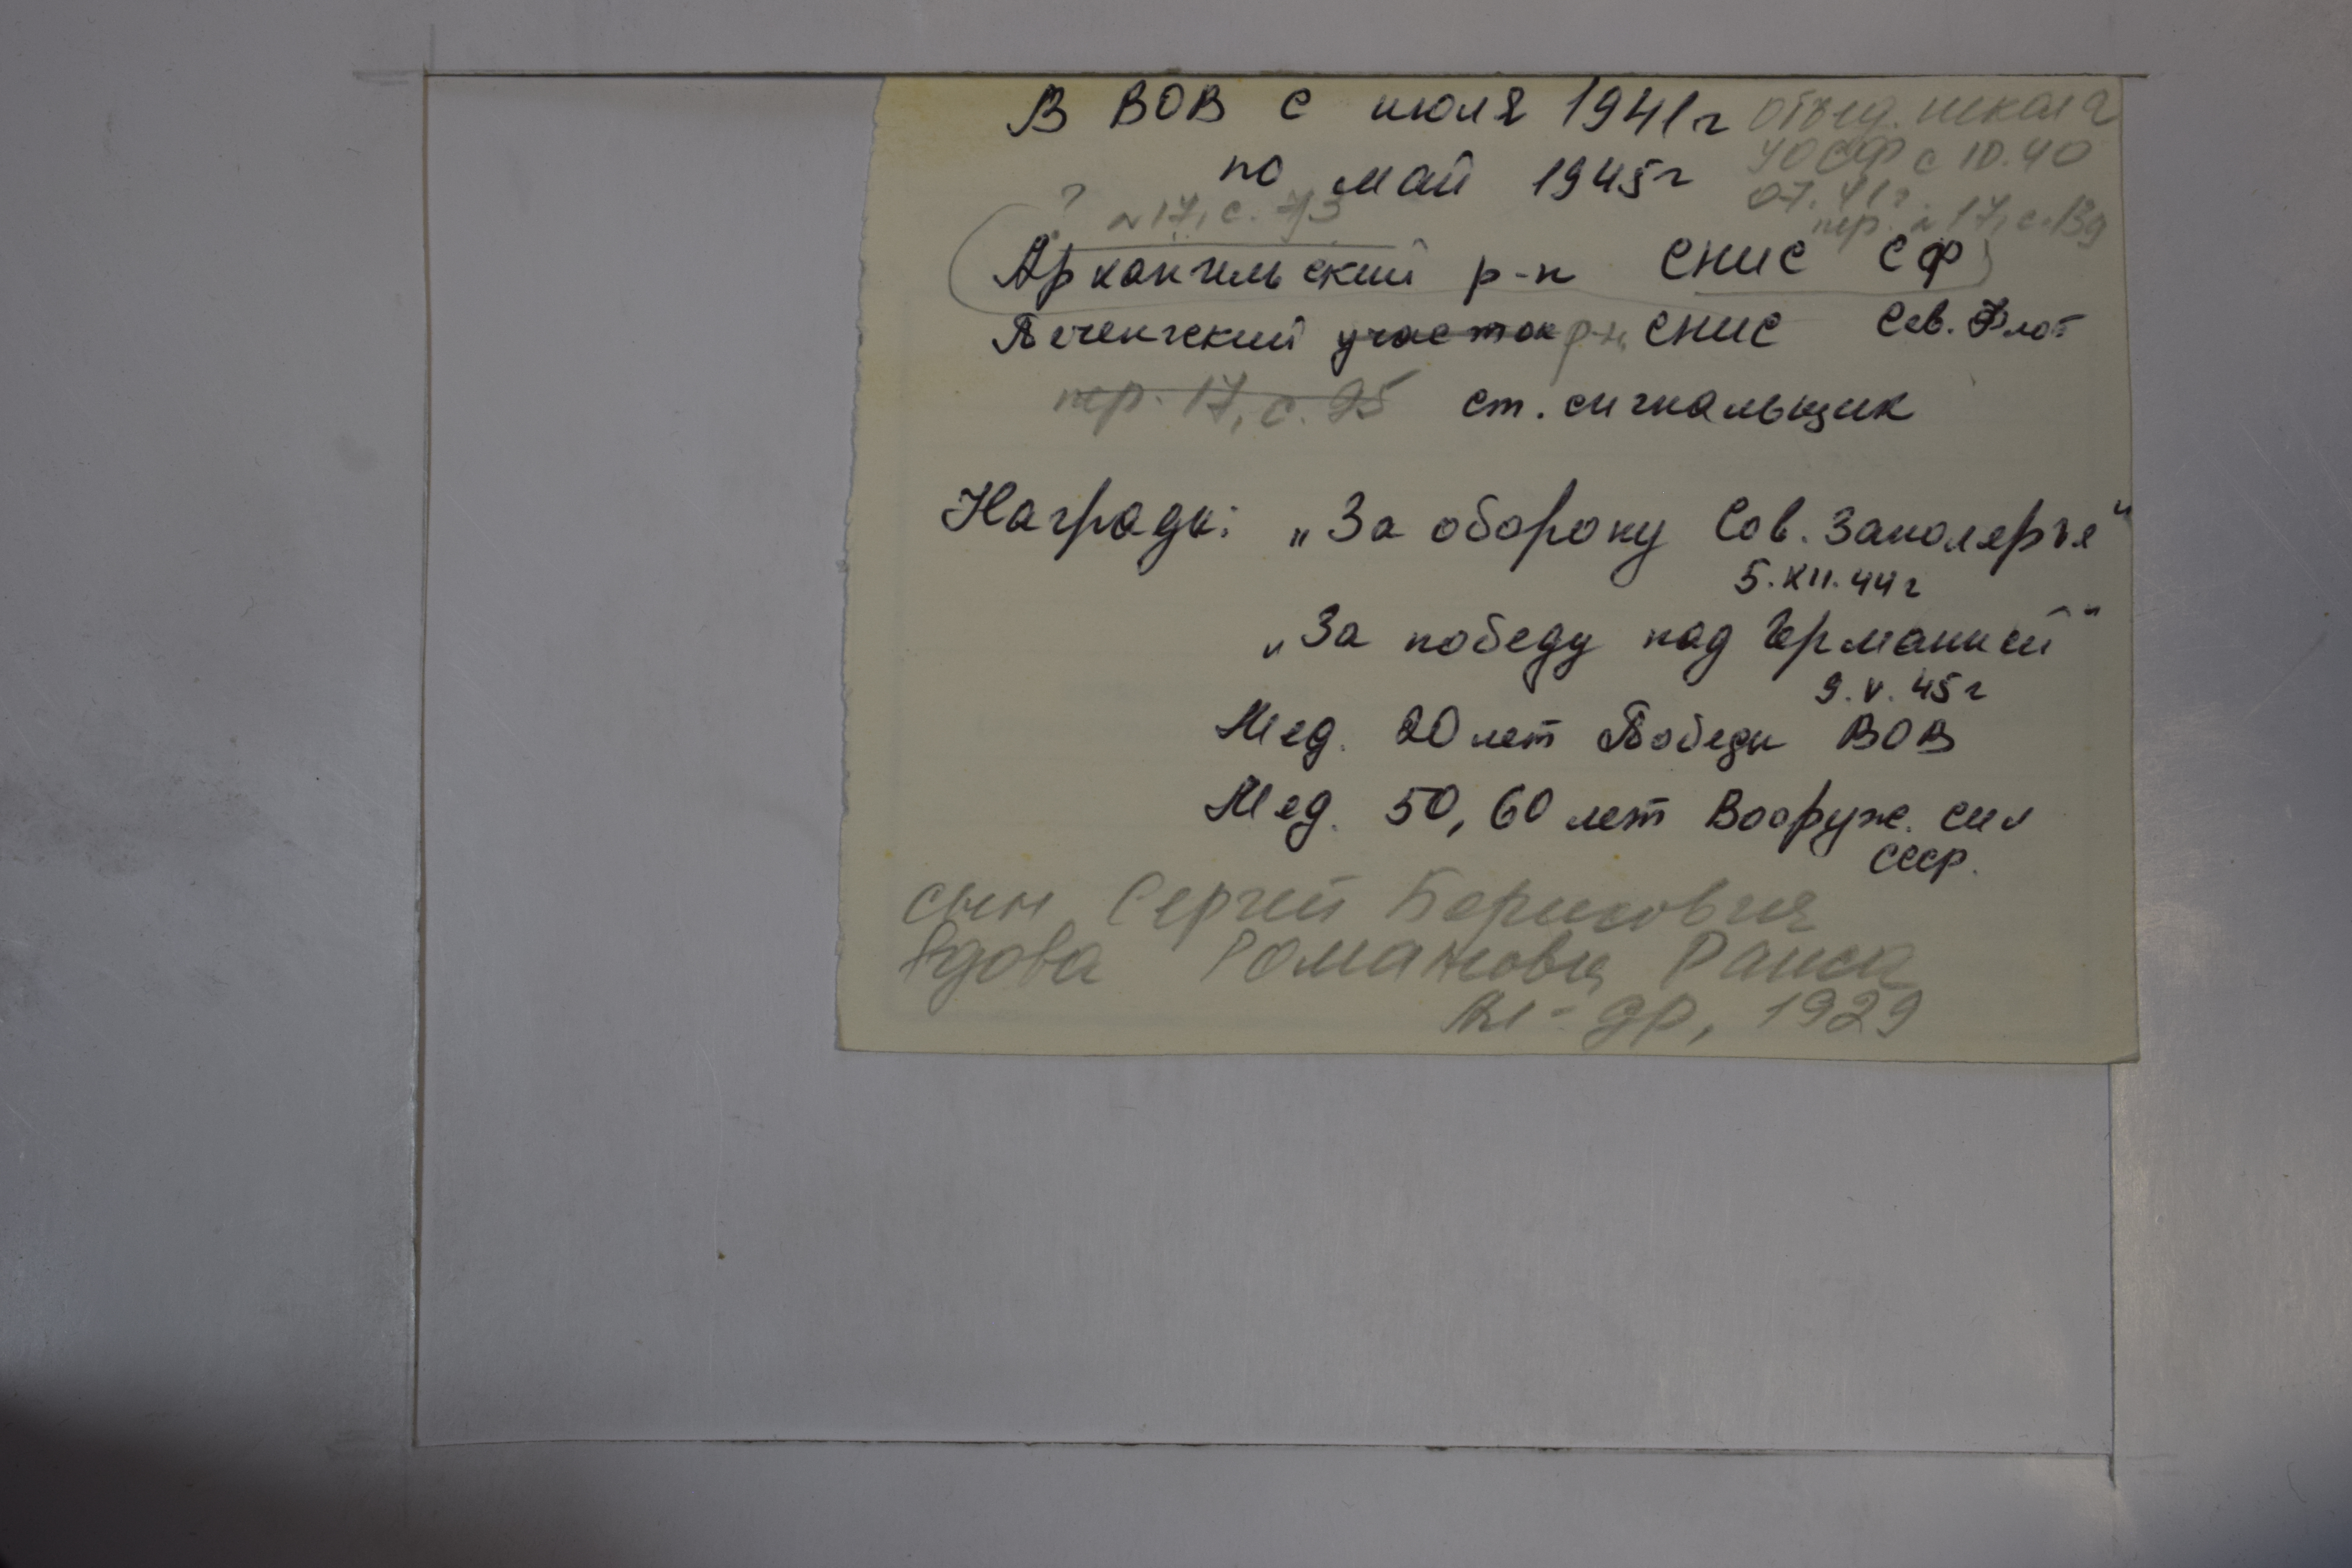 В ВОВ с июля 1941г объед. школа
по май 1945г УОСФ с 10.40
07.41г.
? № 17, с. 73 пр. № 17, с. 139
Архангельский р-н СНИС СФ
Печенгский участок р-н СНИС Сев. Флот
пр. 17, с. 95 ст. сигнальщик
Награды: „За оборону Сов. Заполярья"
5.XII.44г
„За победу над Германией"
9.V.45г
Мед. 20 лет Победы ВОВ
Мед. 50, 60 лет Вооруж. сил
СССР.
сын Сергей Борисович
Вдова Раиса
Ал-др, 1929